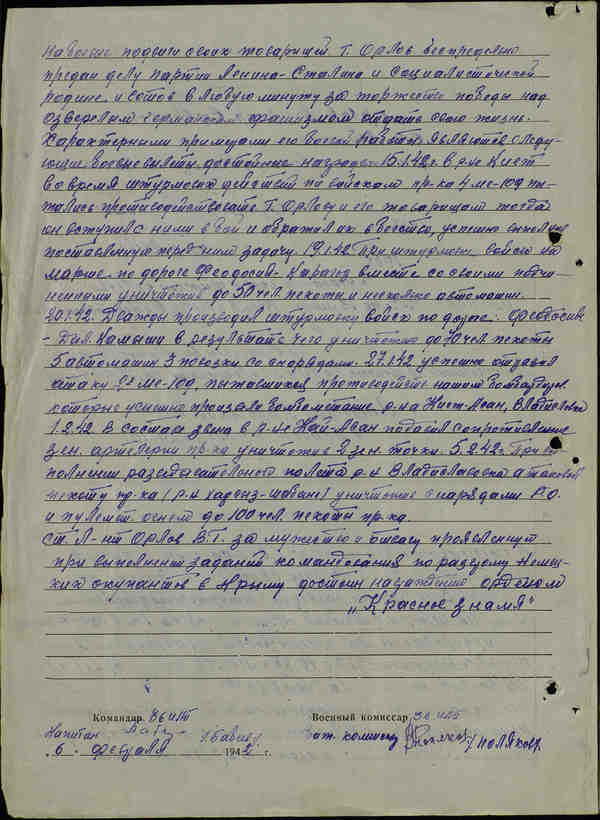 на боевые подвиги своих товарищей. Т. Орлов беспредельно
предан делу партии Ленина-Сталина и социалистической
родине, и готов в любую минуту за торжество победы над
озверелым германским фашизмом отдать свою жизнь.
Характерными примерами его боевой работы являются следу-
ющие боевые вылеты достойные награды. 15.1.42 г. в р-не
во время штурмовых действий по войскам пр-ка 4 ме-109 пы-
тались противодействовать Т. Орлову и его товарищам тогда
он вступил с ними в бой и обратил их в бегство, успешно выполнив
поставленную перед ним задачу. 19.1.42. При штурмовке войск на
марше по дороге Феодосия - вместе со своими подчи-
ненными уничтожил до 50 чел. пехоты и несколько автомашин.
20.1.42. Дважды производил штурмовку войск по дороге: Феодосия
- Дал. Камыши в результате чего уничтожил до 70 чел пехоты
5 автомашин 3 повозки со снарядами. 27.1.42 успешно отразил
атаку 2х ме-109, пытавшихся противодейств. нашим бомбардир.
которые успешно произвели бомбометание р-на Асан, Владиславовка
1.2.42 В составе звена в р-не Асан подавил сопротивление
зен. артелерии пр-ка уничтожив 2 зен. точки. 5.2.42. При вы-
полнении разведовательного полета р-н Владиславовка атаковал
пехоту пр-ка (р-н ) уничтожив снарядами Р.О.
и пулемет. огнем до 100 чел. пехоты пр-ка.
Ст. л-нт Орлов В.Г. за мужество и отвагу проявленную
при выполнении заданий командования по разгрому немец-
ких окупантов в Крыму достоин награждения орденом
„Красное знамя"
Командир 36 ИАП Военный комиссар 36 ИАП
Капитан бат. комиссар /Поляков/
„6" февраля 1942 г.